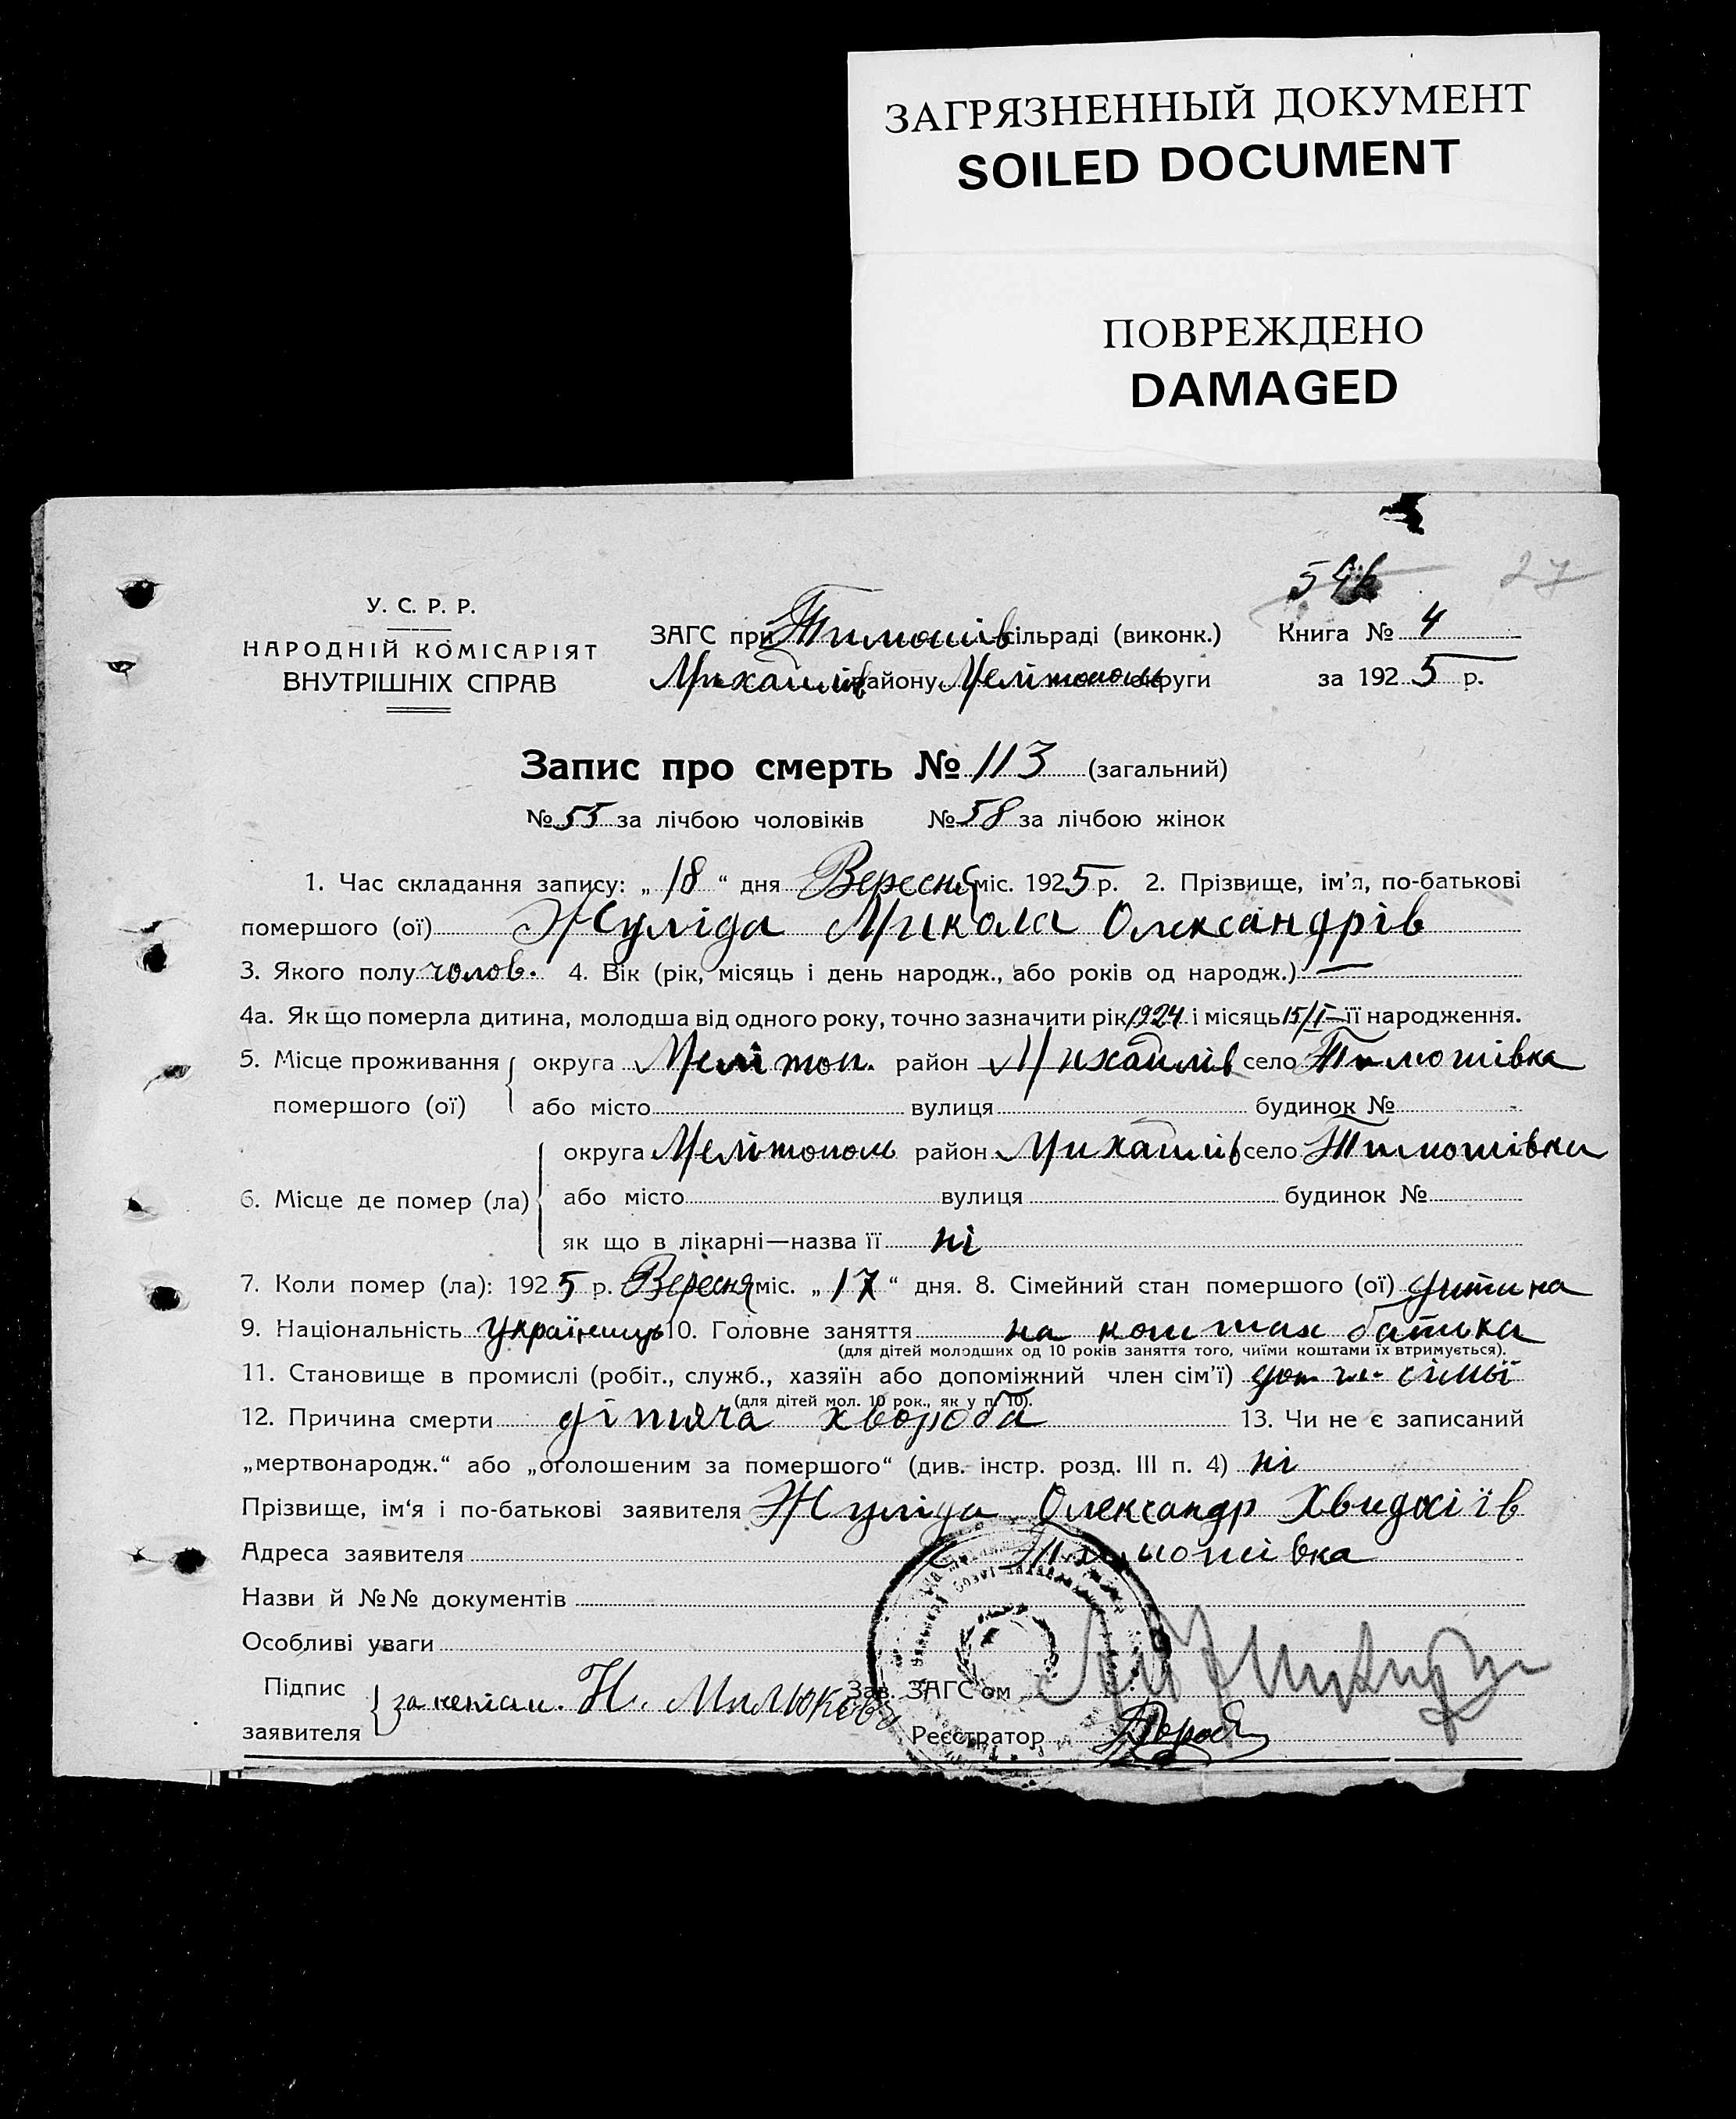 ЗАГРЯЗНЕННЫЙ ДОКУМЕНТ
SOILED DOCUMENT
ПОВРЕЖДЕНО
DAMAGED
27
У. С. Р. Р.
НАРОДНІЙ КОМІСАРІЯТ
ВНУТРІШНІХ СПРАВ
ЗАГС при Тимошів сільраді (виконк.) Книга № 4
Михайлів району Мелітополь округи за 1925 р.
Запис про смерть № 113 (загальний)
№ 55 за лічбою чоловіків № 58 за лічбою жінок
1. Час складання запису: „ 18 “ дня Вересня міс. 1925 р. 2. Прізвище, ім’я, по-батькові
помершого (ої) Жуліда Микола Олександрів
3. Якого полу чолов. 4. Вік (рік, місяць і день народж., або років од народж.) —
4а. Як що померла дитина, молодша від одного року, точно зазначити рік 1924 і місяць 15/I — її народження.
5. Місце проживання округа Мелітоп. район Михайлів село Тимошівка
помершого (ої) або місто вулиця будинок №
округа Мелітополь район Михайлів село Тимошівка
6. Місце де помер (ла) або місто вулиця будинок №
як що в лікарні—назва її ні
7. Коли помер (ла): 1925 р. Вересня міс. „ 17 “ дня. 8. Сімейний стан помершого (ої) дитина
9. Національність українець 10. Головне заняття на коштах батька
(для дітей молодших од 10 років заняття того, чиїми коштами їх втримується).
11. Становище в промислі (робіт., служб., хазяїн або допоміжний член сім’ї) доп. чл. сімьї
(для дітей мол. 10 рок., як у п. 10).
12. Причина смерти дітяча хвороба 13. Чи не є записаний
„мертвонародж.“ або „оголошеним за помершого“ (див. інстр. розд. III п. 4) ні
Прізвище, ім‘я і по-батькові заявителя Жуліда Олександр
Адреса заявителя Тимошівка
Назви й №№ документів
Особливі уваги
Підпис Зав. ЗАГС‘ом
заявителя за непісм. Н. Милюков
Реєстратор